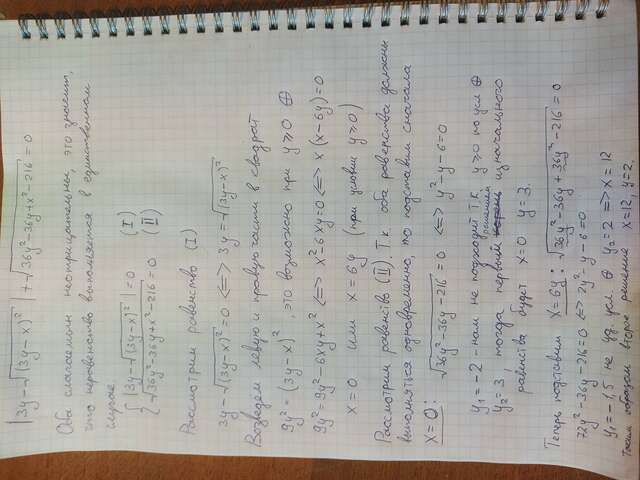 |3y-√(3y-x)²| + √36y²-36y+x²-216 = 0
Оба слагаемых неотрицательны, это значит,
что неравенство выполняется в единственном
случае
{ |3y-√(3y-x)²| = 0 (I)
√36y²-36y+x²-216 = 0 (II)
Рассмотрим равенство (I)
3y-√(3y-x)² = 0 <=> 3y = √(3y-x)²
Возведём левую и правую части в квадрат
9y² = (3y-x)², это возможно при y⩾0 ⊕
9y² = 9y²-6xy+x² <=> x²-6xy=0 <=> x(x-6y)=0
x=0 или x=6y (при условии y⩾0)
Рассмотрим равенство (II). Т.к. оба равенства должны
выполняться одновременно, то подставим сначала
x=0: √36y²-36y-216 = 0 <=> y²-y-6=0
y₁=-2 - нам не подходит т.к. y⩾0 по усл ⊕
y₂=3, тогда первым решением изначального
равенства будет x=0 y=3.
Теперь подставим x=6y: √36y²-36y+36y²-216 = 0
72y²-36y-216=0 <=> 2y²-y-6=0
y₁=-1,5 не уд усл ⊕ y₂=2 => x=12
Таким образом второе решение x=12, y=2,